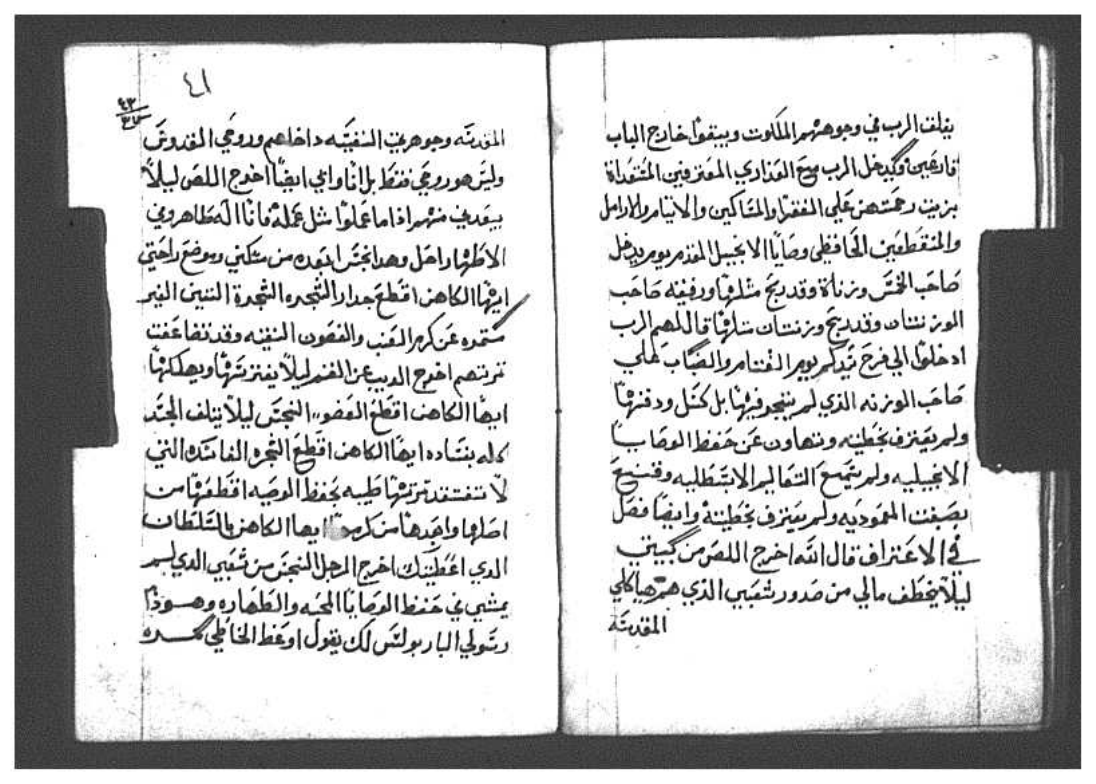 يغلق الرب في وجوههم الملكوت ويبقوا خارج الباب
قارعين وكيدخل الرب مع العذاري المعترفين المستعداة
بزيت رحمتهن علي الفقرا والمساكين والايتام والارامل
والمنقطعين الحافظي وصايا الانجيل المقدس يوم يدخل
صاحب الخمس وزناة وقد ربح مثلها ورفيقه صاحب
الوزنتان وقد ربح وزنتان مثلها قال لهم الرب
ادخلوا الي فرح سيدكم يوم الغتام والصاب علي
صاحب الوزنه الذي لم يتجر فيها بل كسل ودفنها
ولم يعترف بخطيته وتهاون عن حفظ الوصايا
الانجيليه ولم يسمع التعاليم الابسطليه وقنع
بصبغت المعموديه ولم يعترف بخطيتة وايضا فصل
في الاعتراف قال الله اخرج اللص من كبيتي
ليلا يخطف مالي من صدور شعبي الذي هم هياكلي
المقدسه
٤١
٤٣
٣٤
المقدسه وجوهريت النقيه داخلهم وروحي القدوس
وليس هو روحي فقط بل انا وابي ايضا اخرج اللص ليلا
يبعدني منهم اذا ما عملوا مثل عمله فانا اله طاهر وفي
الاطهار احل وهذا نجس ابعده من مسكني وموضع راحتي
ايها الكاهن اقطع جدار الشجره الشجرة التنين الغير
مثمره عن كرم العنب والغصون النقيه وقد تضاعفت
ثمرتهم اخرج الديب عن الغنم ليلا يفترسها ويهلكها
ايها الكاهن اقطع العضو النجس ليلا يتلف الجسد
كله بفساده ايها الكاهن اقطع الشجره الفاسده التي
لا تفتقد ثمرتها طيبه بحفظ الوصيه اقطعها من
اصلها وابعدها من كرمي ايها الكاهن بالسلطان
الدي اعطيتك اخرج الرجل النجس من شعبي الدي لم
يمشي في حفظ الوصايا المحبه والطهاره وهوذا
رسولي البار بولس لك يقول اوعظ الخاطي مره